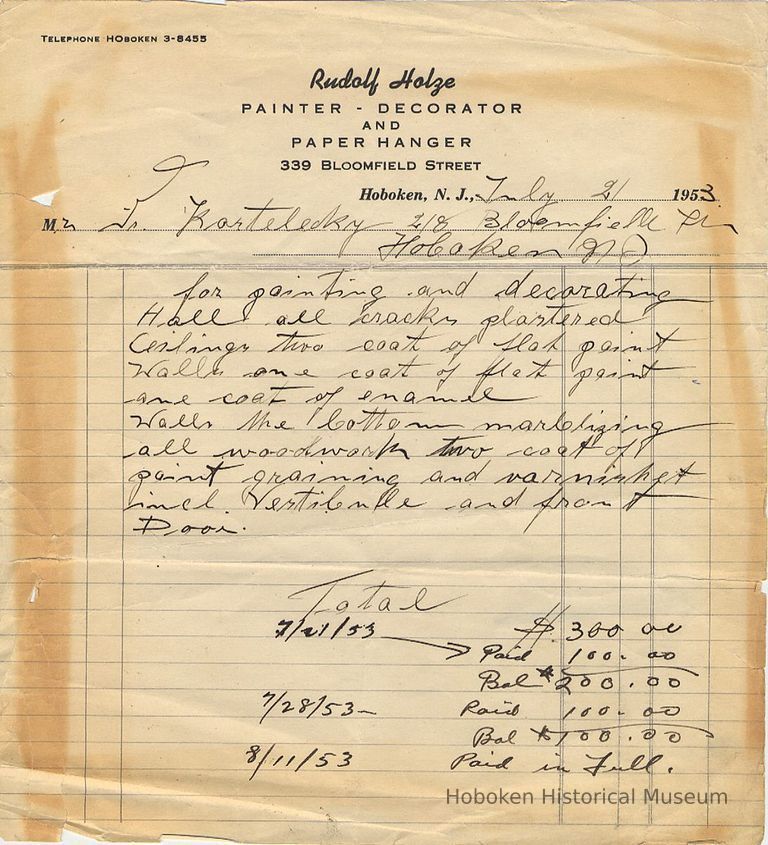 TELEPHONE HOBOKEN 3-8455
Rudolf Holze
PAINTER - DECORATOR
AND
PAPER HANGER
339 BLOOMFIELD STREET
Hoboken, N. J., July 21 1953.
Mr Dr. Karteledky 218 Bloomfield
Hoboken NJ
for painting and decorating
Hall all cracks plastered
Ceilings two coat of flat paint
Walls one coat of flat paint
one coat of enamel
Walls the bottom marblizing
all woodwork two coat of
paint graining and varnishet
incl. Vestibulle and front
Door.
Total
7/21/53 $. 300 00
Paid 100. 00
Bal $200.00
7/28/53 Paid 100.00
Bal $100.00
8/11/53 Paid in Full.
Hoboken Historical Museum